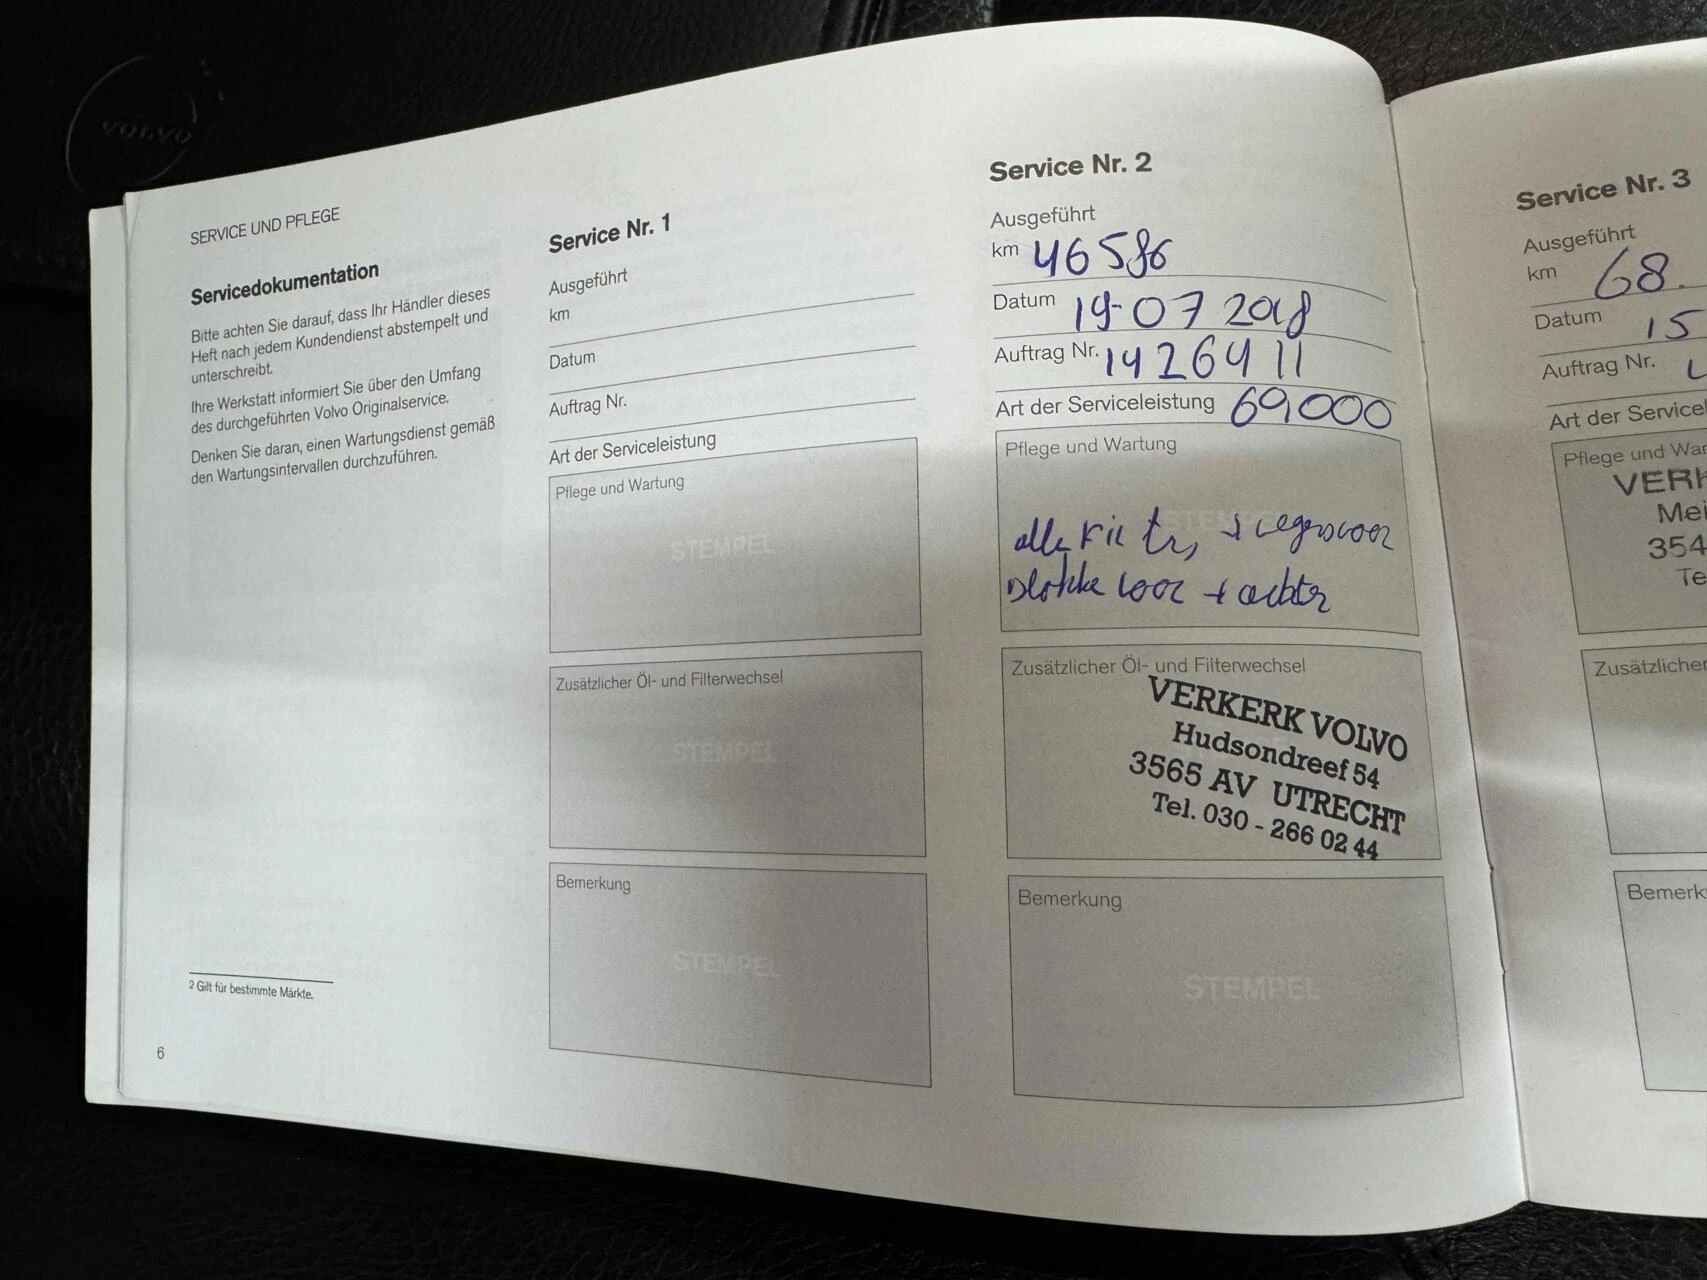 VOLVO
SERVICE UND PFLEGE
Servicedokumentation
Bitte achten Sie darauf, dass Ihr Händler dieses
Heft nach jedem Kundendienst abstempelt und
unterschreibt.
Ihre Werkstatt informiert Sie über den Umfang
des durchgeführten Volvo Originalservice.
Denken Sie daran, einen Wartungsdienst gemäß
den Wartungsintervallen durchzuführen.
2 Gilt für bestimmte Märkte.
6
Service Nr. 1
Ausgeführt
km
Datum
Auftrag Nr.
Art der Serviceleistung
Pflege und Wartung
STEMPEL
Zusätzlicher Öl- und Filterwechsel
STEMPEL
Bemerkung
STEMPEL
Service Nr. 2
Ausgeführt
km 46586
Datum 19-07 2018
Auftrag Nr. 1426411
Art der Serviceleistung 69000
Pflege und Wartung
STEMPEL
alle
voor + achter
Zusätzlicher Öl- und Filterwechsel
VERKERK VOLVO
Hudsondreef 54
3565 AV UTRECHT
Tel. 030 - 266 02 44
Bemerkung
STEMPEL
Service Nr. 3
Ausgeführt
km 68.
Datum 15
Auftrag Nr.
Art der Service
Pflege und War
VERK
Mei
354
Te
Zusätzlicher
Bemerk